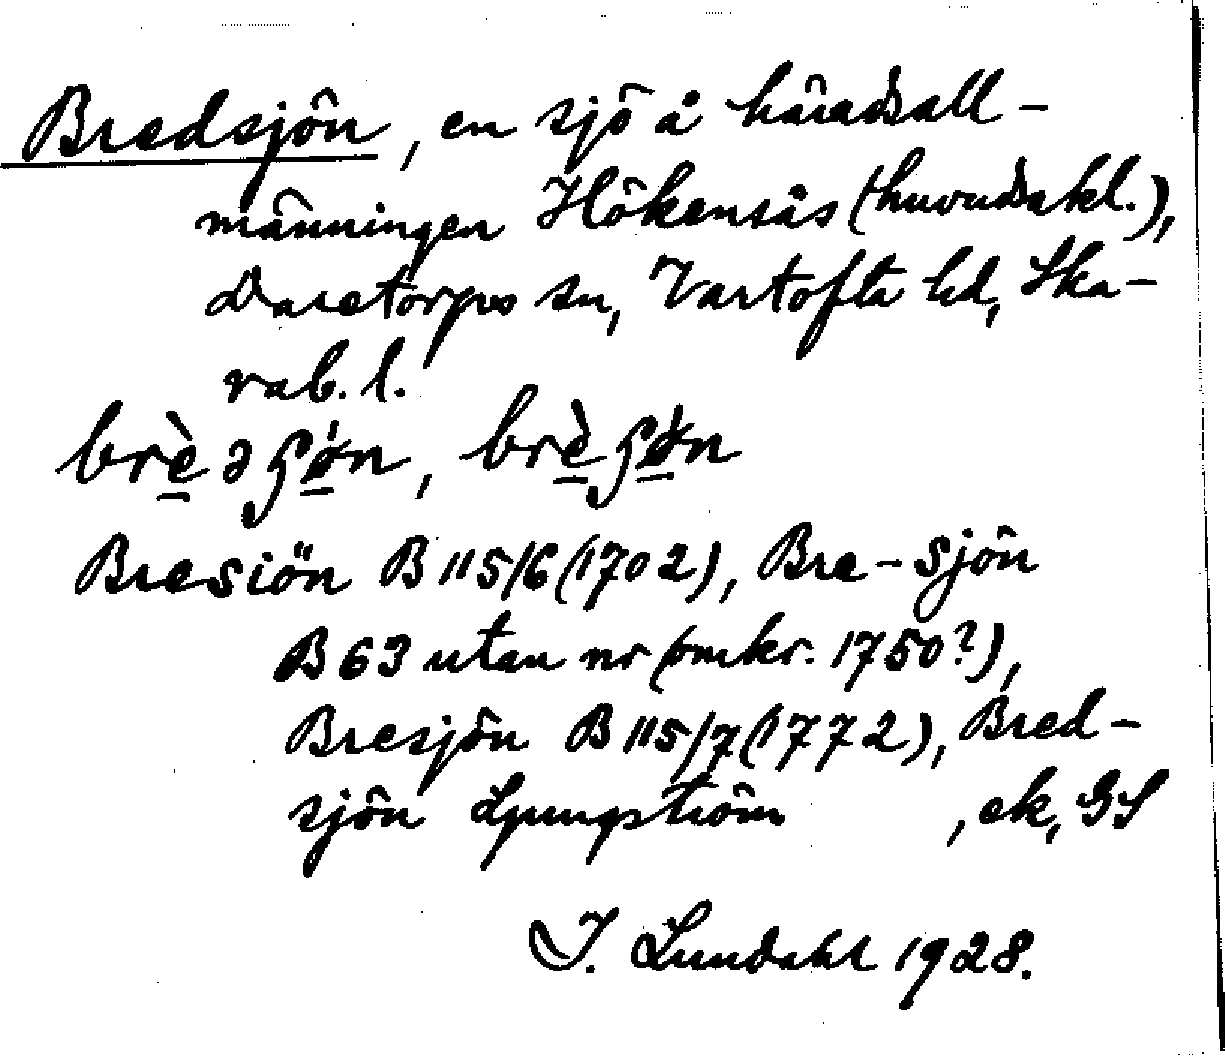 Bredsjön, en sjö å häradsall-
männingen Hökensås (huvudskl.),
Daretorps sn, Vartofta hd, Ska-
rab. l.
Bresiön B 115/6 (1702), Bre-sjön
B 63 utan nr (omkr. 1750?),
Bresjön B 115/7 (1772), Bred-
sjön Ljungström , ek, GS
I. Lundahl 1928.